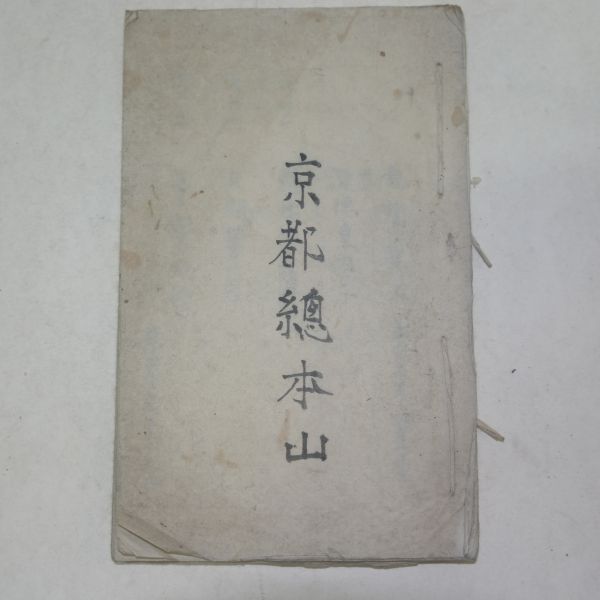 京都總本山